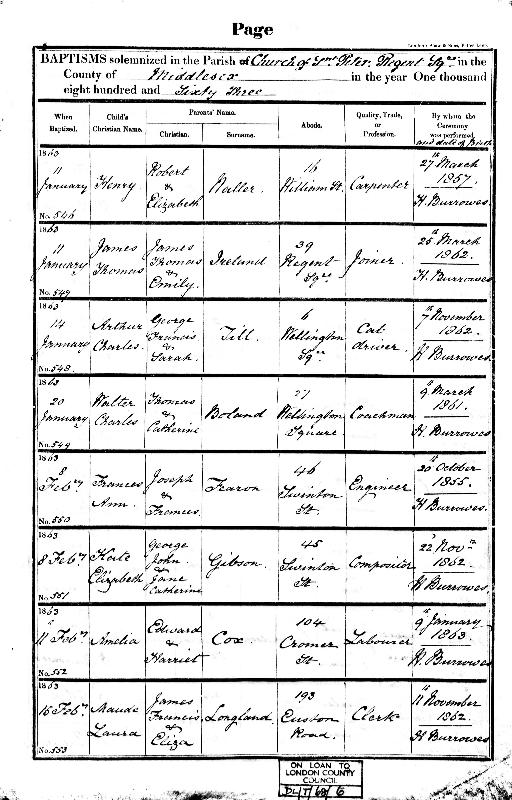 Page
BAPTISMS solemnized in the Parish of Church of St. Peter, Regent Sqre in the
County of Middlesex in the year One thousand
eight hundred and Sixty Three
When Baptized. Child's Christian Name. Parents' Name. Christian. Surname. Abode. Quality, Trade, or Profession. By whom the Ceremony was performed and date of Birth
1863
11 January
No. 546
Henry
Robert & Elizabeth
16 William St.
Carpenter
27th March 1857.
H. Burrowes
1863
11 January
James Thomas
James Thomas & Emily.
Ireland
39 Regent Sqre
Joiner.
25th March 1862.
H. Burrowes
1863
14 January
No. 548
Arthur Charles
George Francis & Sarah.
Till.
6 Wellington Sqre
Cab driver.
7th November 1862.
H Burrowes
1863
20 January
No. 549
Walter Charles
Thomas & Catherine
Boland
27 Wellington Square
Coachman
9th March 1861.
H. Burrowes
1863
8 Feby
No. 550
Frances Ann.
Joseph & Frances.
Fearon
46 Swinton St.
Engineer
20th October 1855.
H Burrowes.
1863
8 Feby
No. 551
Kate Elizabeth
George John & Jane Catherine
Gibson.
45 Swinton St.
Compositor
22nd Novr 1862.
H Burrowes
1863
11 Feby
No. 552
Amelia
Edward & Harriet
Cox
104 Cromer St.
Labourer
9th January 1863.
H. Burrowes
1863
16 Feby
No. 553
Maude Laura
James Francis & Eliza
Longland.
193 Euston Road.
Clerk
11th November 1862.
H Burrowes
ON LOAN TO
LONDON COUNTY
COUNCIL